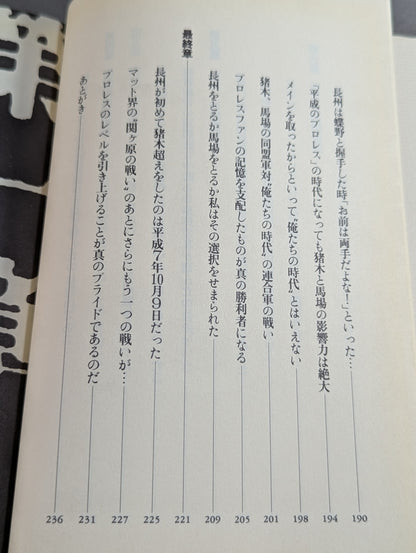 長州は蝶野と握手した時「お前は両手だよな!」といった… 190
「平成のプロレス」の時代になっても猪木と馬場の影響力は絶大 194
メインを取ったからといって“俺たちの時代”とはいえない 198
猪木、馬場の同盟軍対“俺たちの時代”の連合軍の戦い 201
プロレスファンの記憶を支配したものが真の勝利者になる 205
長州をとるか馬場をとるか私はその選択をせまられた 209
最終章 221
長州が初めて猪木超えをしたのは平成7年10月9日だった 225
マット界の“関ヶ原の戦い”のあとにさらにもう一つの戦いが… 227
プロレスのレベルを引き上げることが真のプライドであるのだ 231
あとがき 236